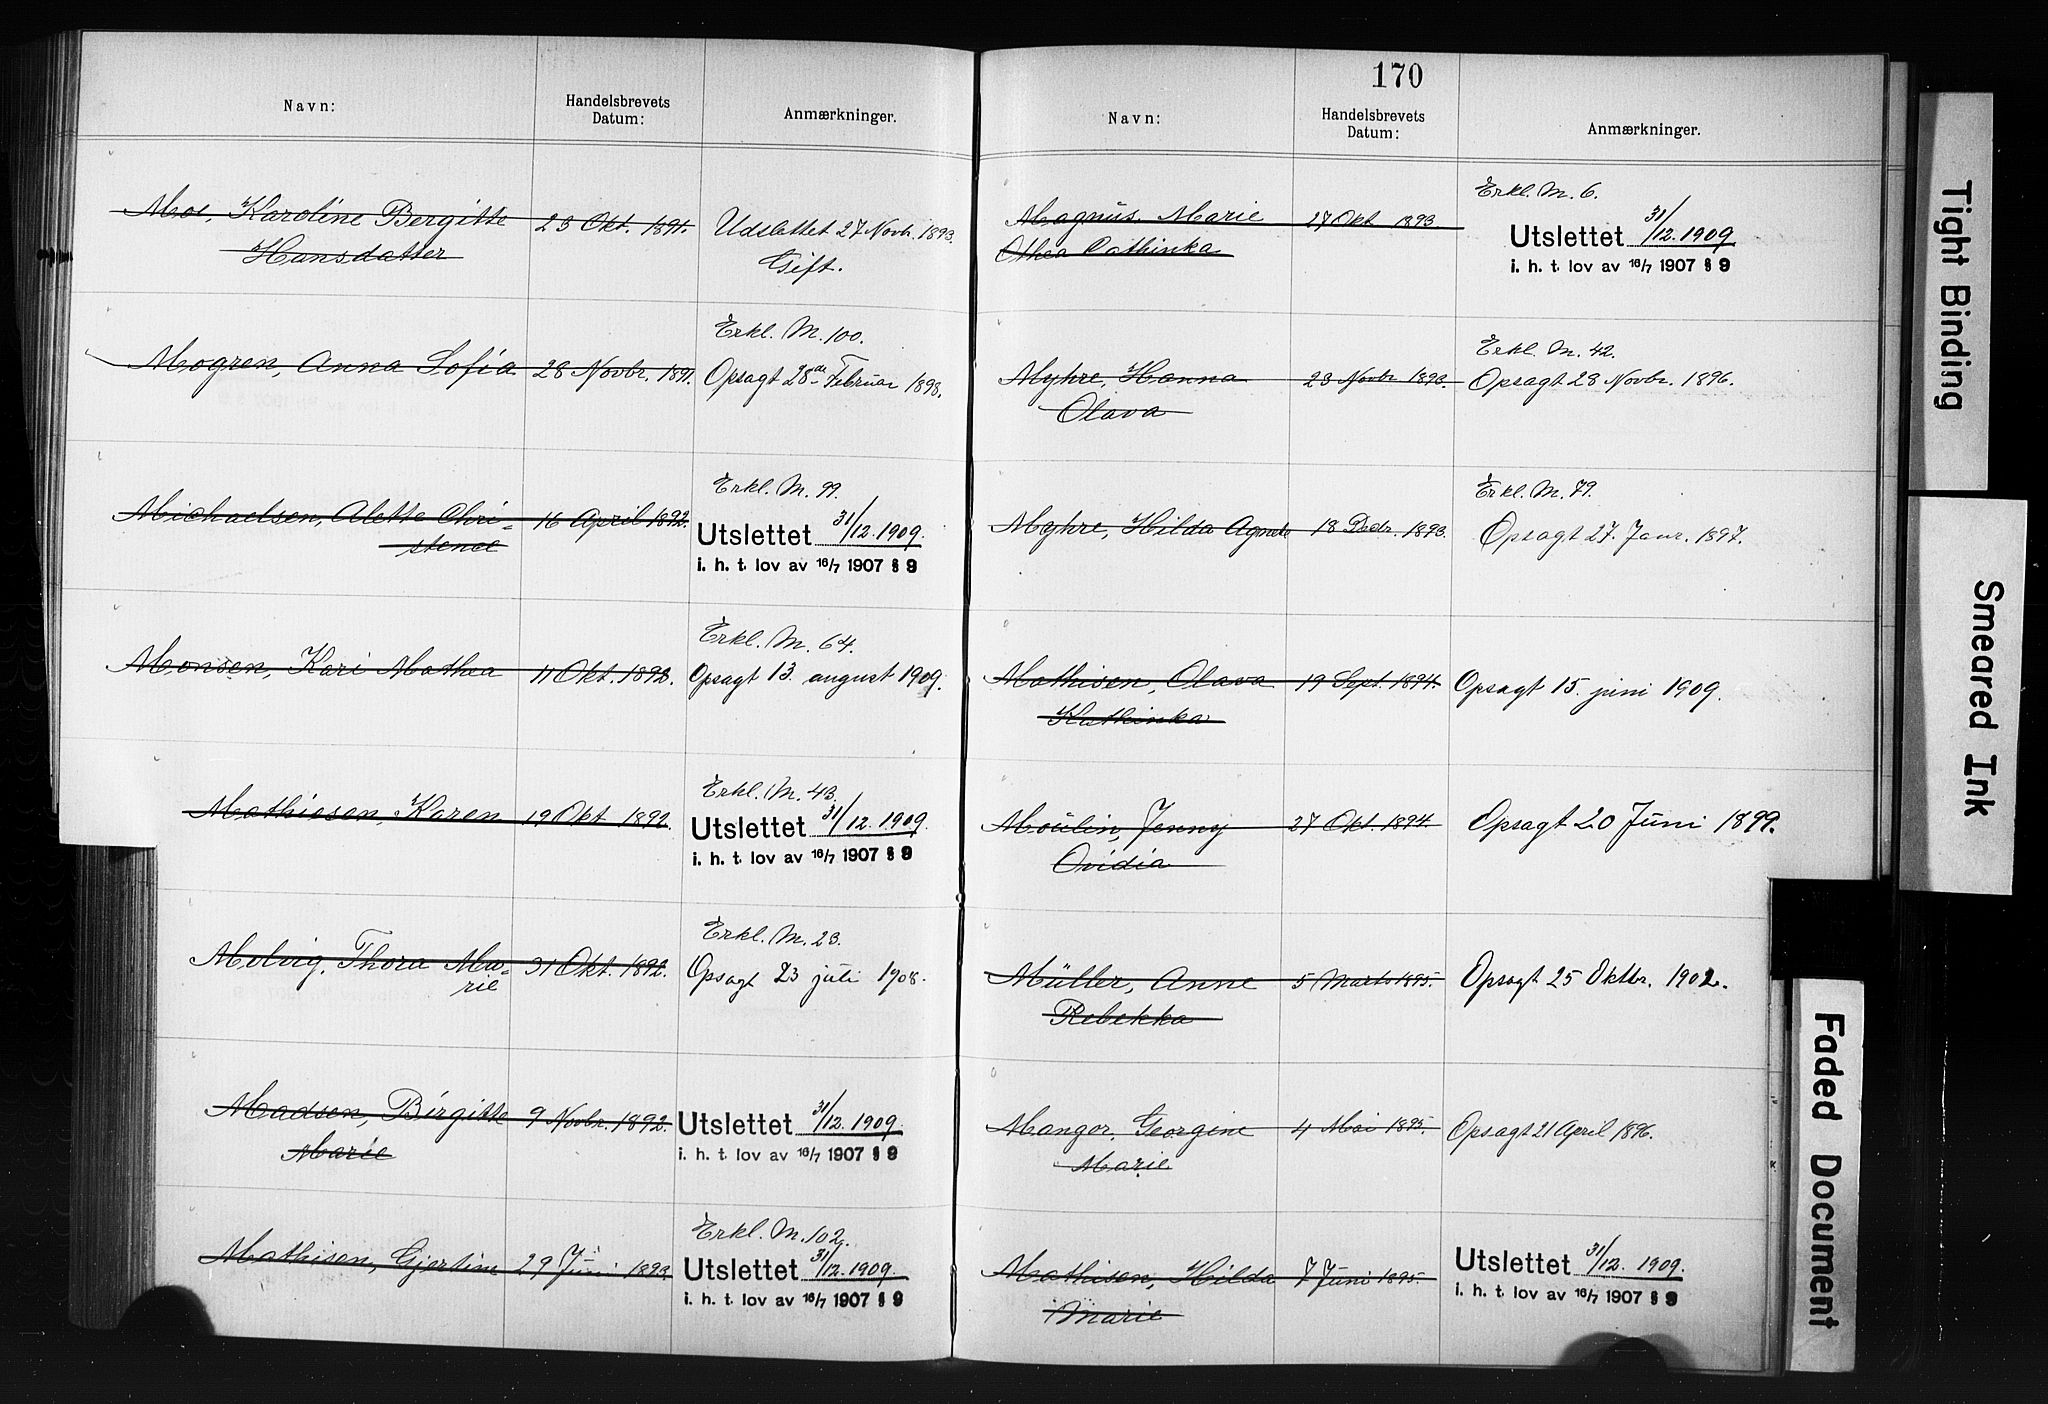 Navn:
Handelsbrevets
Datum:
Anmærkninger.
Moe, Karoline Bergitte 23 Okt. 1891. Udslettet 27 Novbr. 1893.
Hansdatter Gift.
Erkl. M. 100.
Mogren, Anna Sofia 28 Novbr. 1891. Opsagt 28de Februar 1898.
Erkl. M. 99.
Michaelsen, Alette Chri- 16 April 1892. Utslettet 31/12. 1909.
stence i. h. t. lov av 16/7 1907 § 9
Erkl. M. 64.
Monsen, Kari Mathea 11 Okt. 1892. Opsagt 13. august 1909.
Erkl. M. 43.
Mathiesen, Karen 19 Okt 1892. Utslettet 31/12. 1909.
i. h. t. lov av 16/7 1907 § 9
Erkl. M. 23.
Molvig, Thora Ma- 31 Okt. 1892. Opsagt 23 juli 1908.
rie
Madsen, Birgitte 9 Novbr. 1892. Utslettet 31/12. 1909.
Marie i. h. t. lov av 16/7 1907 § 9
Erkl. M. 102.
Mathisen, Gjertine 29 Juni 1893. Utslettet 31/12. 1909.
i. h. t. lov av 16/7 1907 § 9
170
Navn:
Handelsbrevets
Datum:
Anmærkninger.
Erkl. M. 6.
Magnus. Marie 17 Okt 1893. Utslettet 31/12. 1909
Othea Cathinka i. h. t. lov av 16/7 1907 § 9
Erkl. M. 42.
Myhre, Hanna 23 Novbr 1893. Opsagt 28 Novbr. 1896.
Olava
Erkl. M. 79.
Myhre, Hilda Agnete 18 Decbr. 1893. Opsagt 27. Janr. 1897.
Mathisen, Olava 19 Sept. 1894. Opsagt 15. juni 1909.
Kathinka
Moulin, Jenny 27 Okt. 1894. Opsagt 20 Juni 1899.
Ovidia
Müller, Anne 5 Marts 1895. Opsagt 25 Oktbr. 1902.
Rebekka
Mangor, Georgine 4 Mai 1895. Opsagt 21 April 1896.
Marie
Mathisen, Hilda 7 Juni 1895. Utslettet 31/12. 1909.
Marie i. h. t. lov av 16/7 1907 § 9
Tight Binding
Smeared Ink
Faded Document